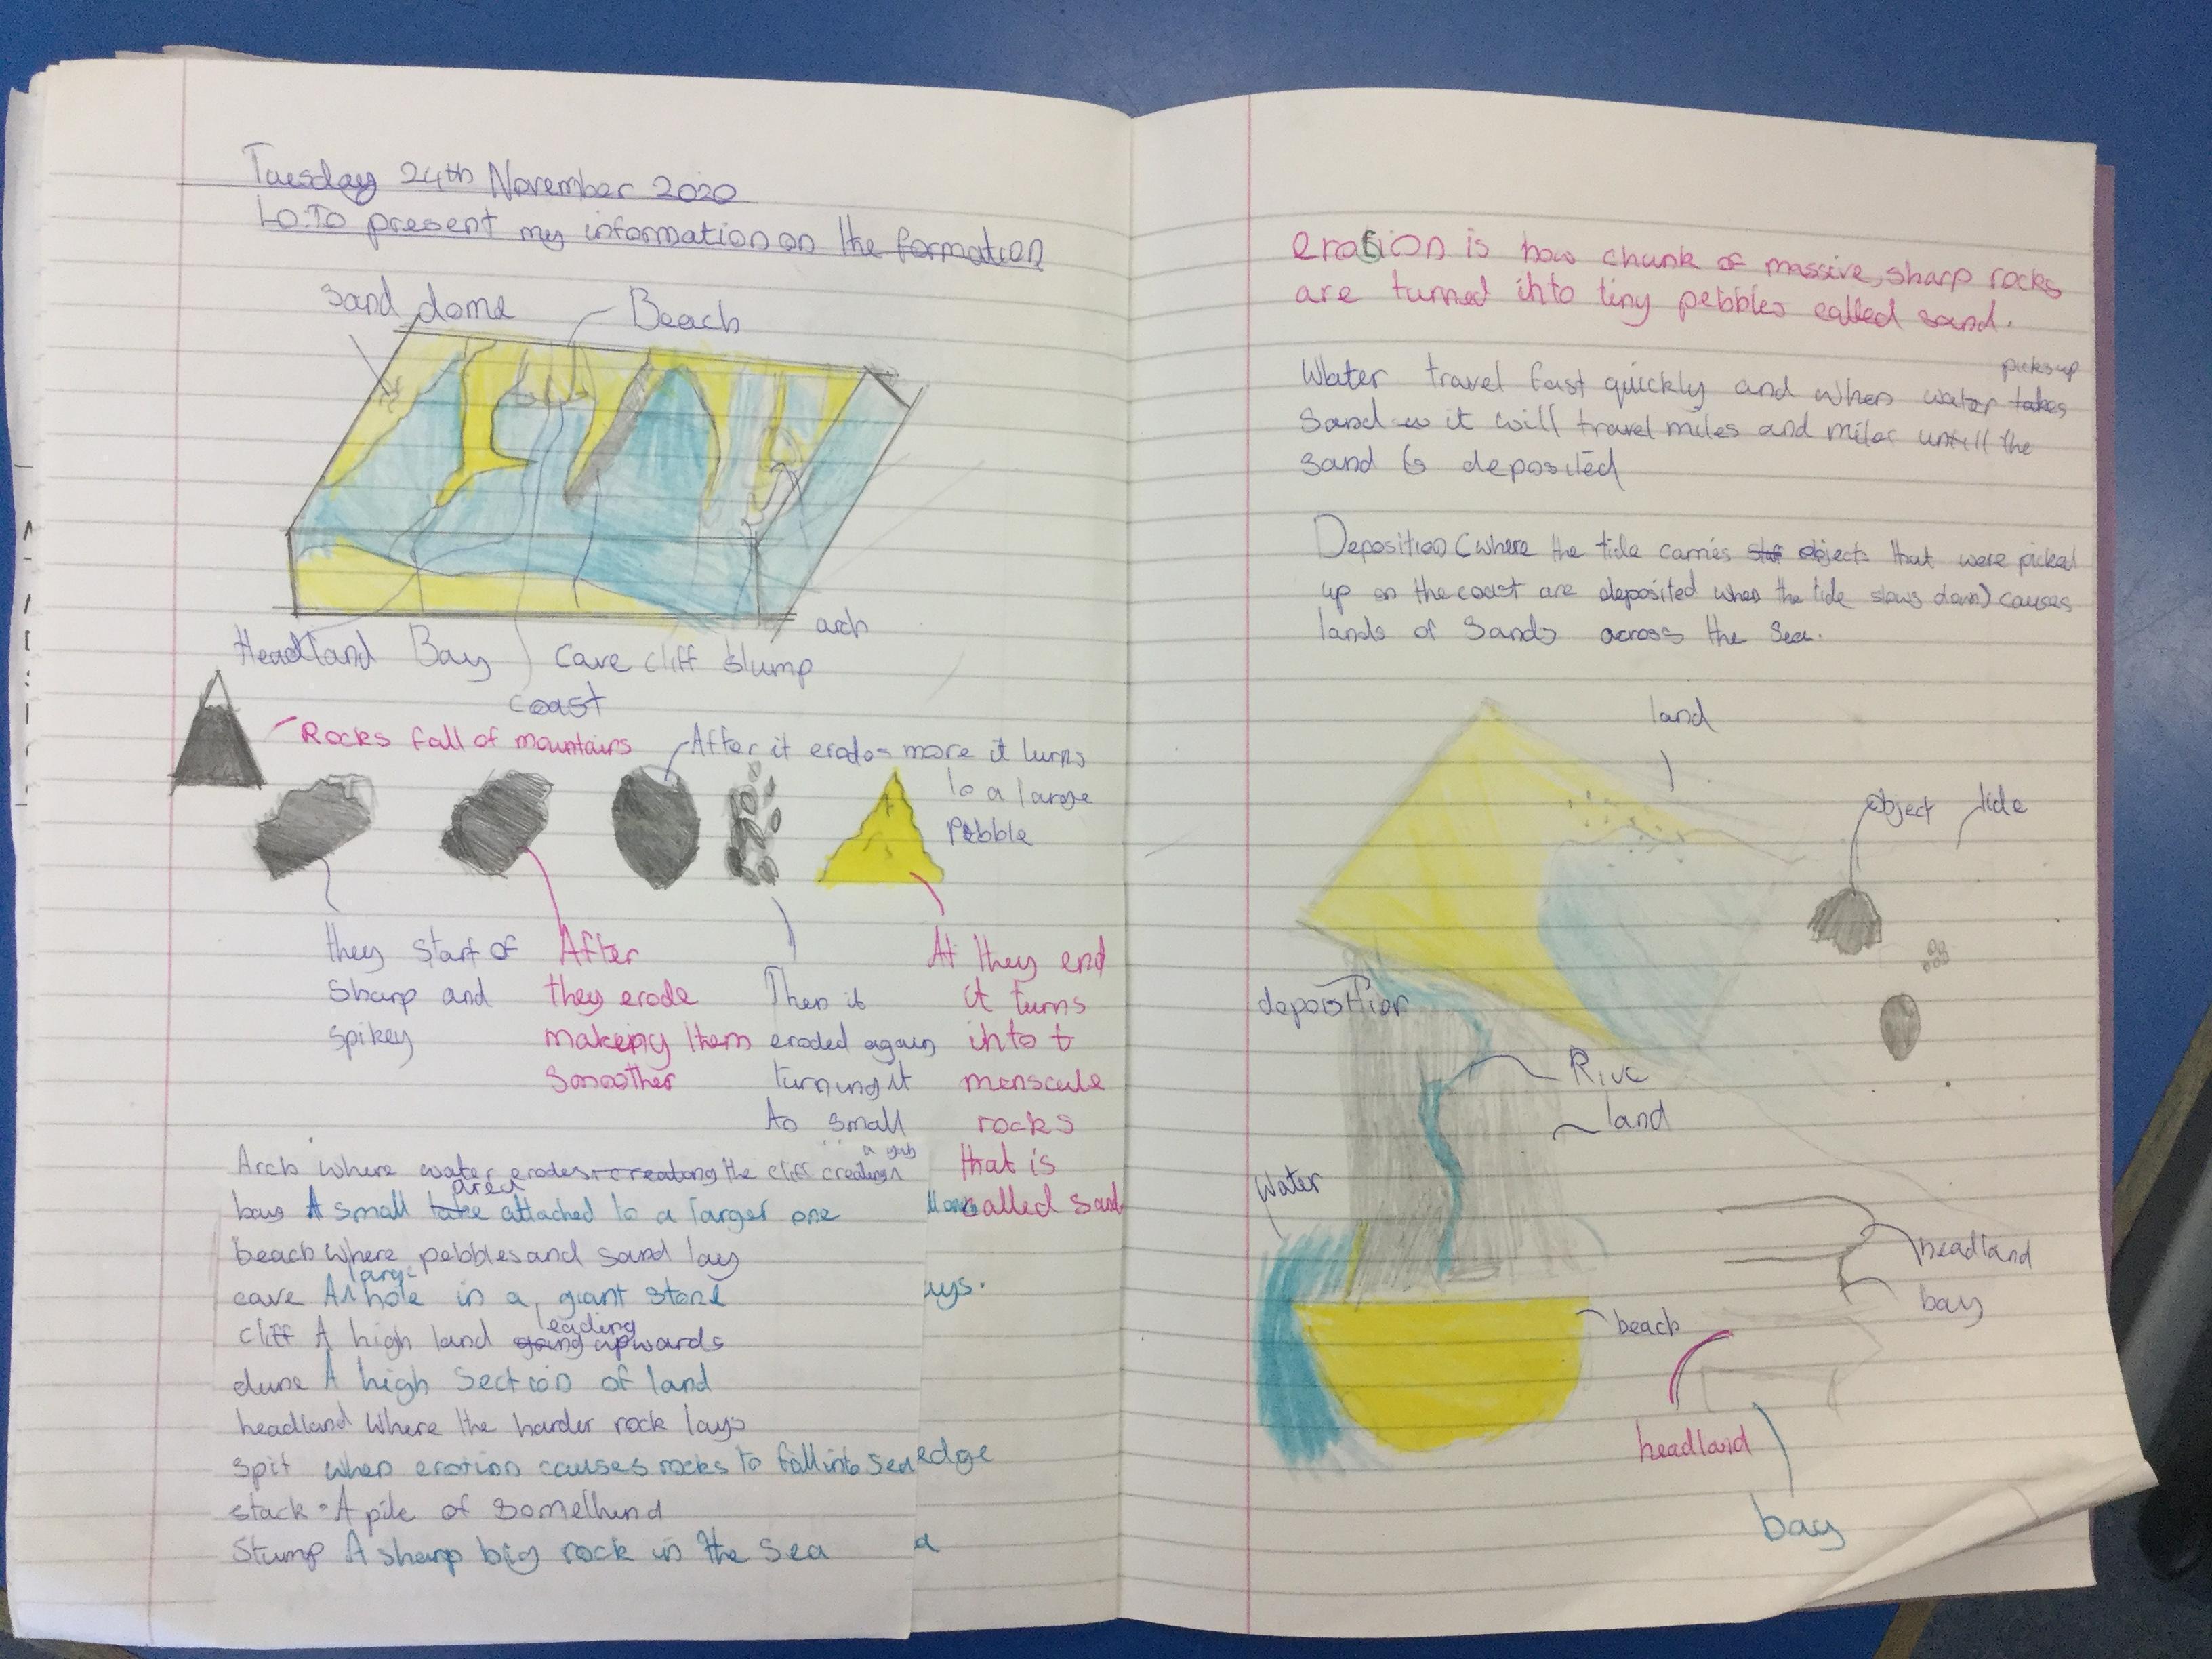 Tuesday 24th November 2020
LO:To present my information on the formation
Sand dome
Beach
arch
Headland Bay Cave cliff slump
coast
Rocks fall of mountains
After it erodes more it turns
to a large
Pebble
they start of
Sharp and
Spikey
After
they erode
making them
Smoother
Then it
eroded again
turning it
to small
At they end
it turns
into t
menscule
rocks
that is
called sand
Arch where water erodes creatong the cliff creating a gab
bay A small take area attached to a larger one
beach where pebbles and sand lay
cave A large hole in a giant stone
cliff A high land going leading upwards
dune A high Section of land
headland Where the harder rock lays
spit when erotion causes rocks to fall into sea
stack A pile of somethind
Stump A sharp big rock in the sea
ys.
edge
a
erosion is how chunk of massive, sharp rocks
are turned into tiny pebbles called sand.
Water travel fast quickly and when water takes picks up
Sand it will travel miles and miles untill the
sand is deposited
Deposition (where the tide carries stuf objects that were picked
up on the coast are deposited when the tide slows down) causes
lands of Sands across the Sea.
land
object
tide
deposition
River
land
Water
headland
bay
beach
headland
bay